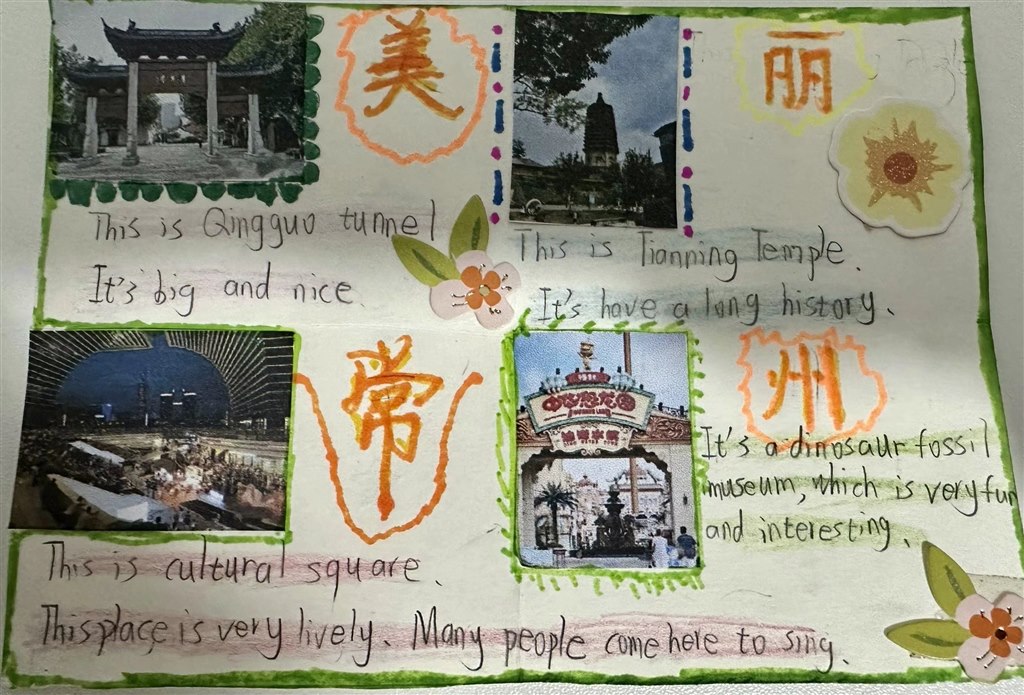 美
丽
This is Qingguo tunnel
It's big and nice.
This is Tianning Temple.
It's have a long history.
常
州
This is cultural square.
This place is very lively. Many people come here to sing.
It's a dinosaur fossil
museum, which is very fun
and interesting.